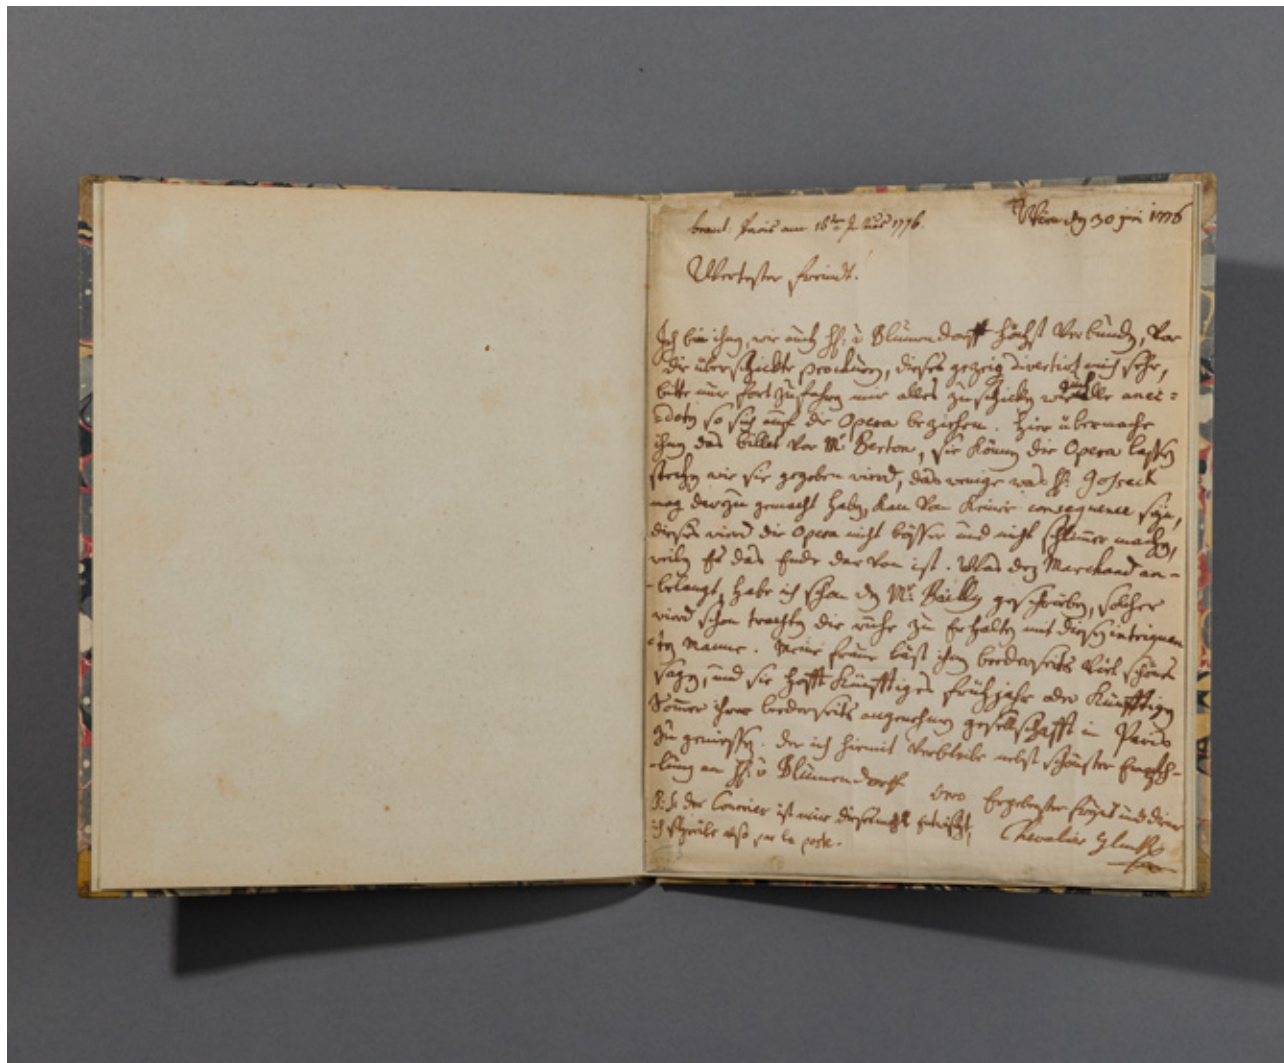 beant. Paris am 16ten 1776.
Wien den 30 juni 1776
Wertester freindt!
Ich bin ihnen, wie auch H: v Blumendorff höchst verbunden, vor
die überschickte brochuren, dieses gezeig divertirt mich sehr,
bitte nur fortzufahren mir alles zu schicken wie auch alle anec=
=doten so sich auf die Opera beziehen. hier übermache
ihnen das billet vor Mr Berton, sie können die Opera lassen
stehen wie sie gegeben wierd, das wenige was H: Gossec
mag darzu gemacht haben, kan von keiner consequence seyn,
dieses wierd die Opera nicht besser und nicht schlimmer machen,
weilen Es das Ende darvon ist. Was den Marchand an-
-belangt, habe ich schon den Mr: Bailly geschrieben, solcher
wierd schon trachten die ruhe zu Erhalten mit diesen intriguan
ten Manne. Meine fraue läst ihnen beederseits viel schönes
sagen, und sie hofft künfftiges frühjahr oder künfftigen
Sommer ihrer beederseits angenehmen gesellschafft in Paris
zu geniessen. der ich hiemit verbleibe nebst schönster Empfeh-
-lung an H: v Blumendorff
dero Ergebenster freyndt und diener
Chevalier Gluck
P: S: der Courier ist mir diesesmahl entwischt,
ich schreibe also par la poste.